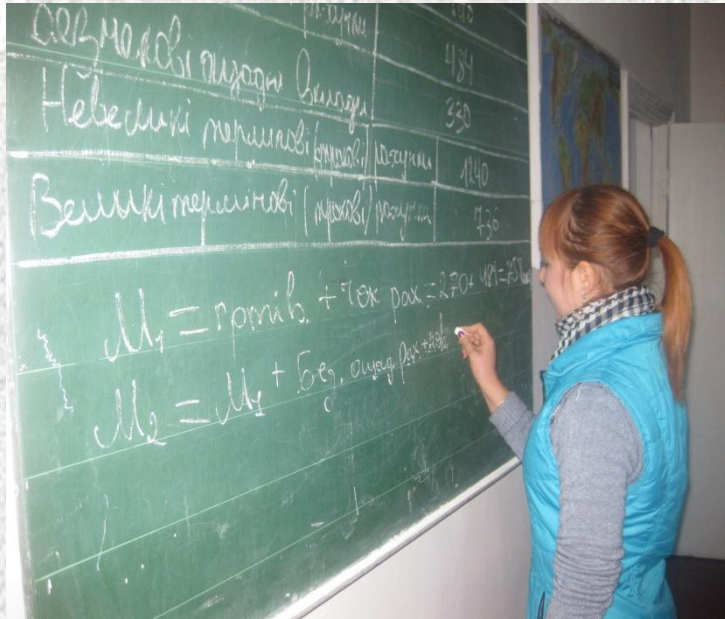 рахунки
484
Безчекові ощадні вклади 330
Невеликі термінові (строкові) рахунки 1240
Великі термінові (строкові) рахунки 736
M₁ = готів. + чек рах. = 270 + 484 = 754
M₂ = M₁ + Без. ощад. рах. +